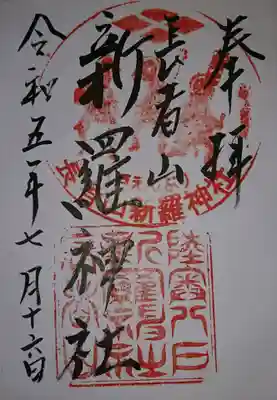 奉拝
長者山
新羅神社
令和五年七月十六日
長者山新羅神社
陸奥八戸